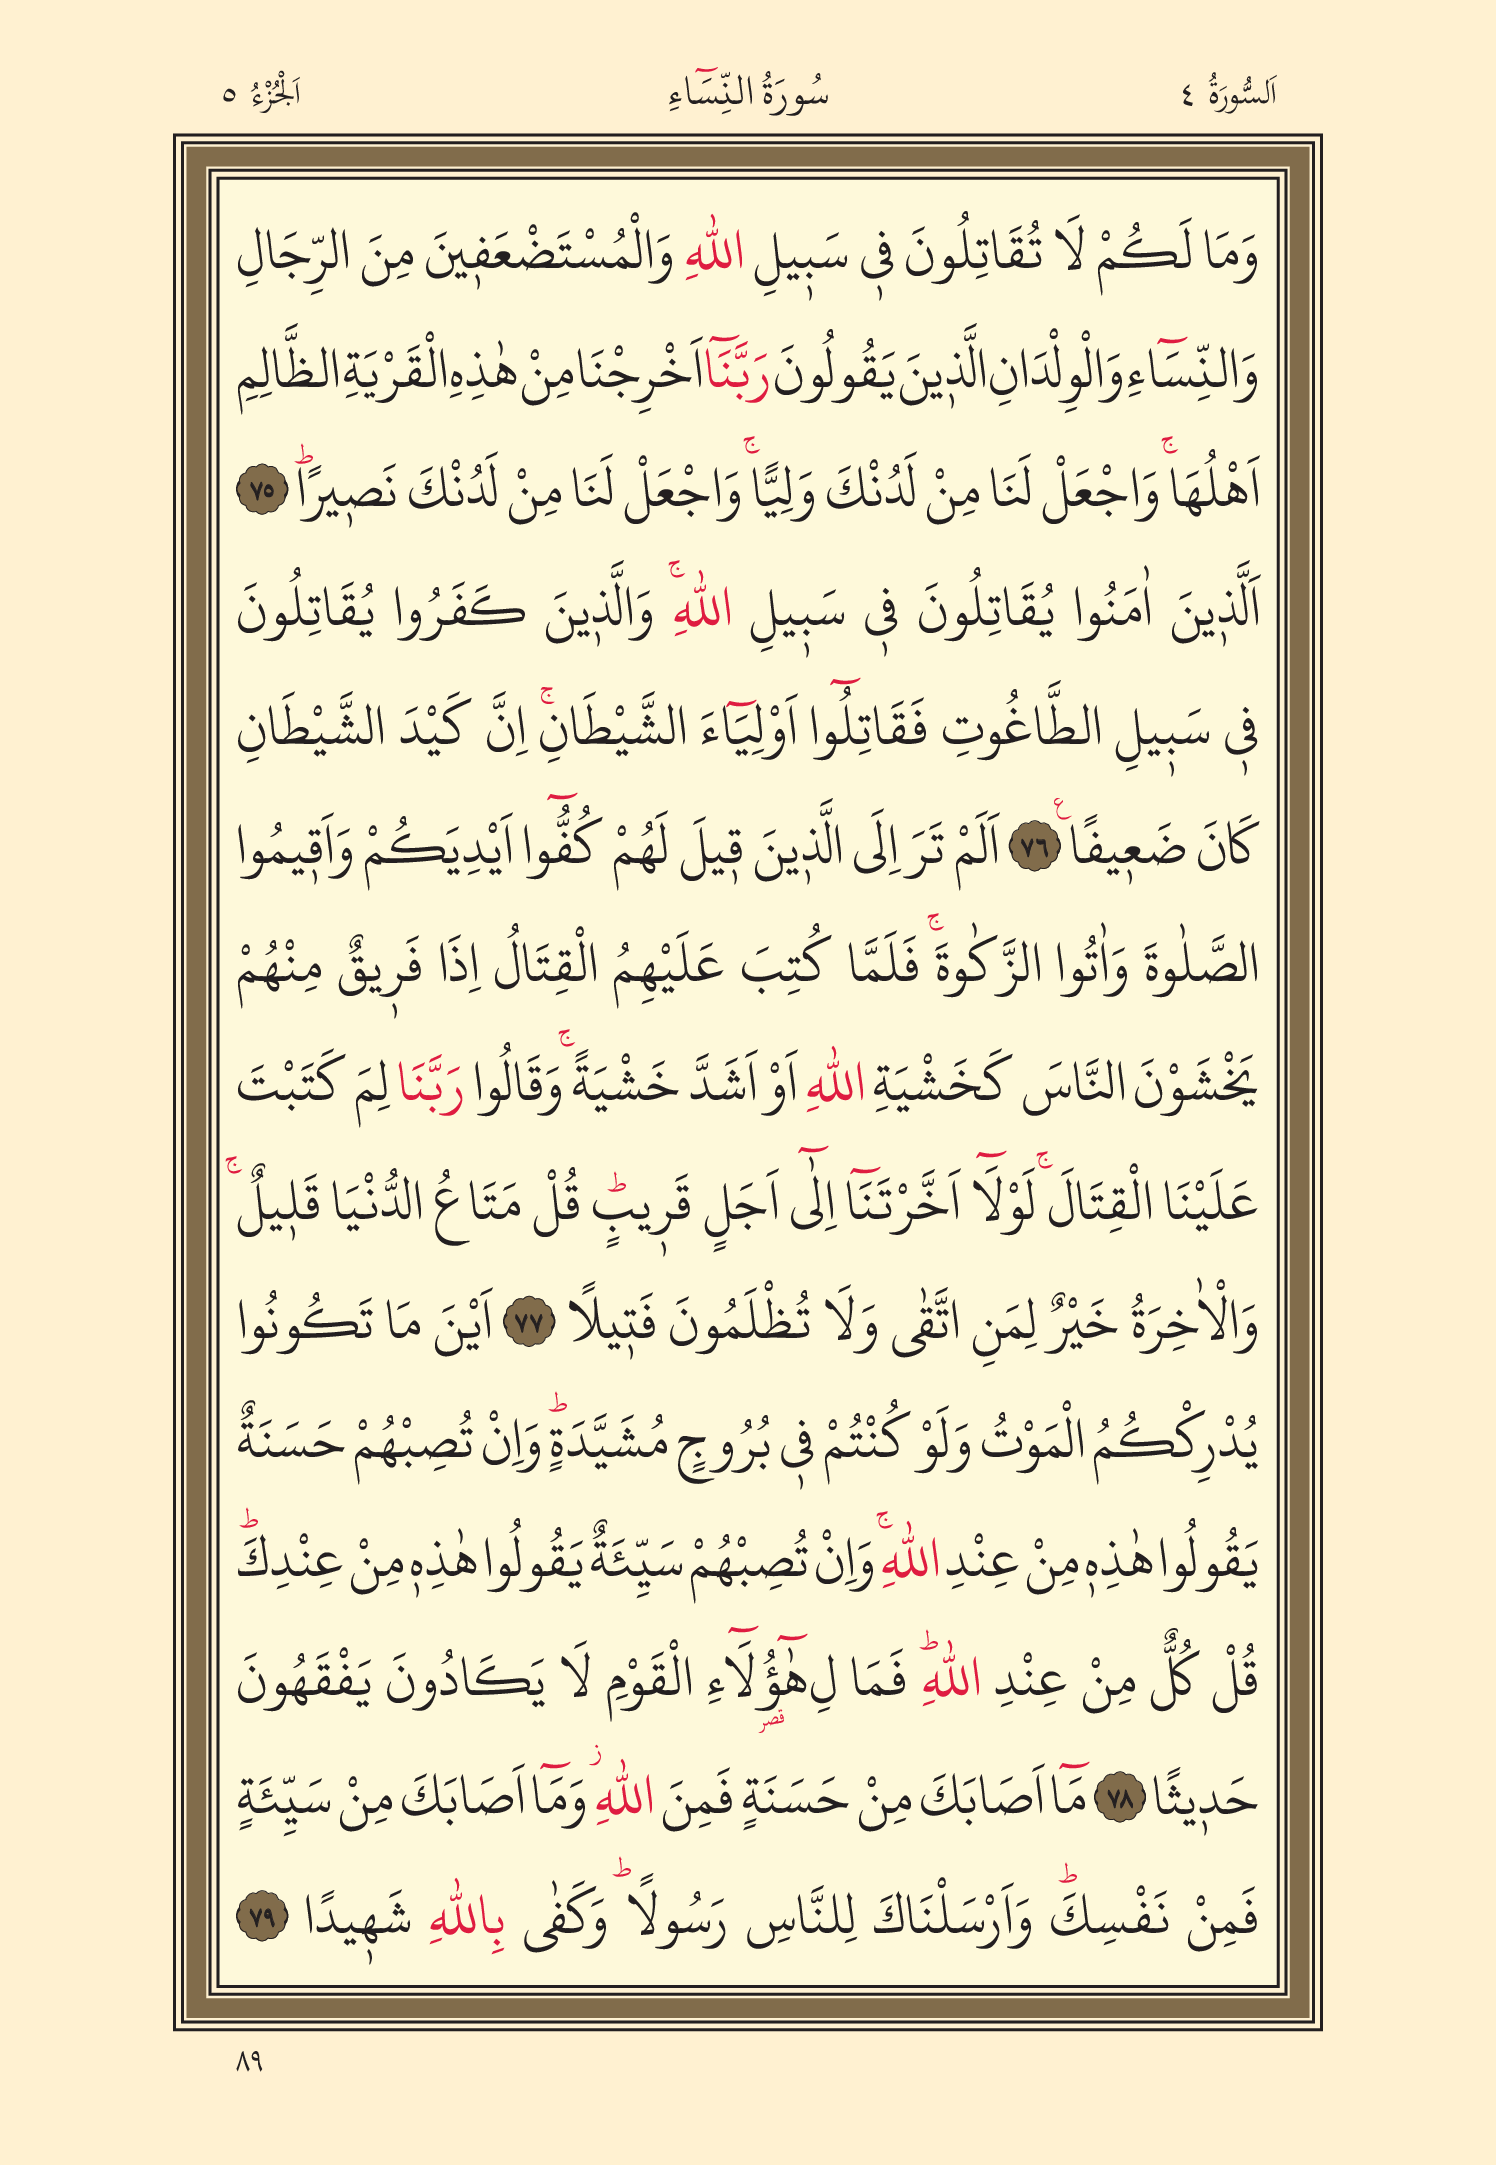 اَلسُّورَةُ ٤ سُورَةُ النِّسَٓاءِ اَلْجُزْءُ ٥
وَمَا لَكُمْ لَا تُقَاتِلُونَ ف۪ي سَب۪يلِ اللّٰهِ وَالْمُسْتَضْعَف۪ينَ مِنَ الرِّجَالِ
وَالنِّسَٓاءِ وَالْوِلْدَانِ الَّذ۪ينَ يَقُولُونَ رَبَّنَٓا اَخْرِجْنَا مِنْ هٰذِهِ الْقَرْيَةِ الظَّالِمِ
اَهْلُهَاۚ وَاجْعَلْ لَنَا مِنْ لَدُنْكَ وَلِيًّاۚ وَاجْعَلْ لَنَا مِنْ لَدُنْكَ نَص۪يرًاۜ ٧٥
اَلَّذ۪ينَ اٰمَنُوا يُقَاتِلُونَ ف۪ي سَب۪يلِ اللّٰهِۚ وَالَّذ۪ينَ كَفَرُوا يُقَاتِلُونَ
ف۪ي سَب۪يلِ الطَّاغُوتِ فَقَاتِلُٓوا اَوْلِيَٓاءَ الشَّيْطَانِۚ اِنَّ كَيْدَ الشَّيْطَانِ
كَانَ ضَع۪يفًاࣖ ٧٦ اَلَمْ تَرَ اِلَى الَّذ۪ينَ ق۪يلَ لَهُمْ كُفُّٓوا اَيْدِيَكُمْ وَاَق۪يمُوا
الصَّلٰوةَ وَاٰتُوا الزَّكٰوةَۚ فَلَمَّا كُتِبَ عَلَيْهِمُ الْقِتَالُ اِذَا فَر۪يقٌ مِنْهُمْ
يَخْشَوْنَ النَّاسَ كَخَشْيَةِ اللّٰهِ اَوْ اَشَدَّ خَشْيَةًۚ وَقَالُوا رَبَّنَا لِمَ كَتَبْتَ
عَلَيْنَا الْقِتَالَۚ لَوْلَٓا اَخَّرْتَنَٓا اِلٰٓى اَجَلٍ قَر۪يبٍۜ قُلْ مَتَاعُ الدُّنْيَا قَل۪يلٌۚ
وَالْاٰخِرَةُ خَيْرٌ لِمَنِ اتَّقٰى وَلَا تُظْلَمُونَ فَت۪يلًا ٧٧ اَيْنَ مَا تَكُونُوا
يُدْرِكْكُمُ الْمَوْتُ وَلَوْ كُنْتُمْ ف۪ي بُرُوجٍ مُشَيَّدَةٍۜ وَاِنْ تُصِبْهُمْ حَسَنَةٌ
يَقُولُوا هٰذِه۪ مِنْ عِنْدِ اللّٰهِۚ وَاِنْ تُصِبْهُمْ سَيِّئَةٌ يَقُولُوا هٰذِه۪ مِنْ عِنْدِكَۜ
قُلْ كُلٌّ مِنْ عِنْدِ اللّٰهِۜ فَمَا لِ هٰٓؤُ۬لَٓاءِ الْقَوْمِ لَا يَكَادُونَ يَفْقَهُونَ
قصر
حَد۪يثًا ٧٨ مَٓا اَصَابَكَ مِنْ حَسَنَةٍ فَمِنَ اللّٰهِۘ وَمَٓا اَصَابَكَ مِنْ سَيِّئَةٍ
فَمِنْ نَفْسِكَۜ وَاَرْسَلْنَاكَ لِلنَّاسِ رَسُولًاۜ وَكَفٰى بِاللّٰهِ شَه۪يدًا ٧٩
٨٩